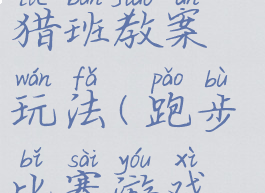 猎班教案
wán fǎ pǎo bù
玩法(跑步
bǐ sài yóu xì
比赛游戏